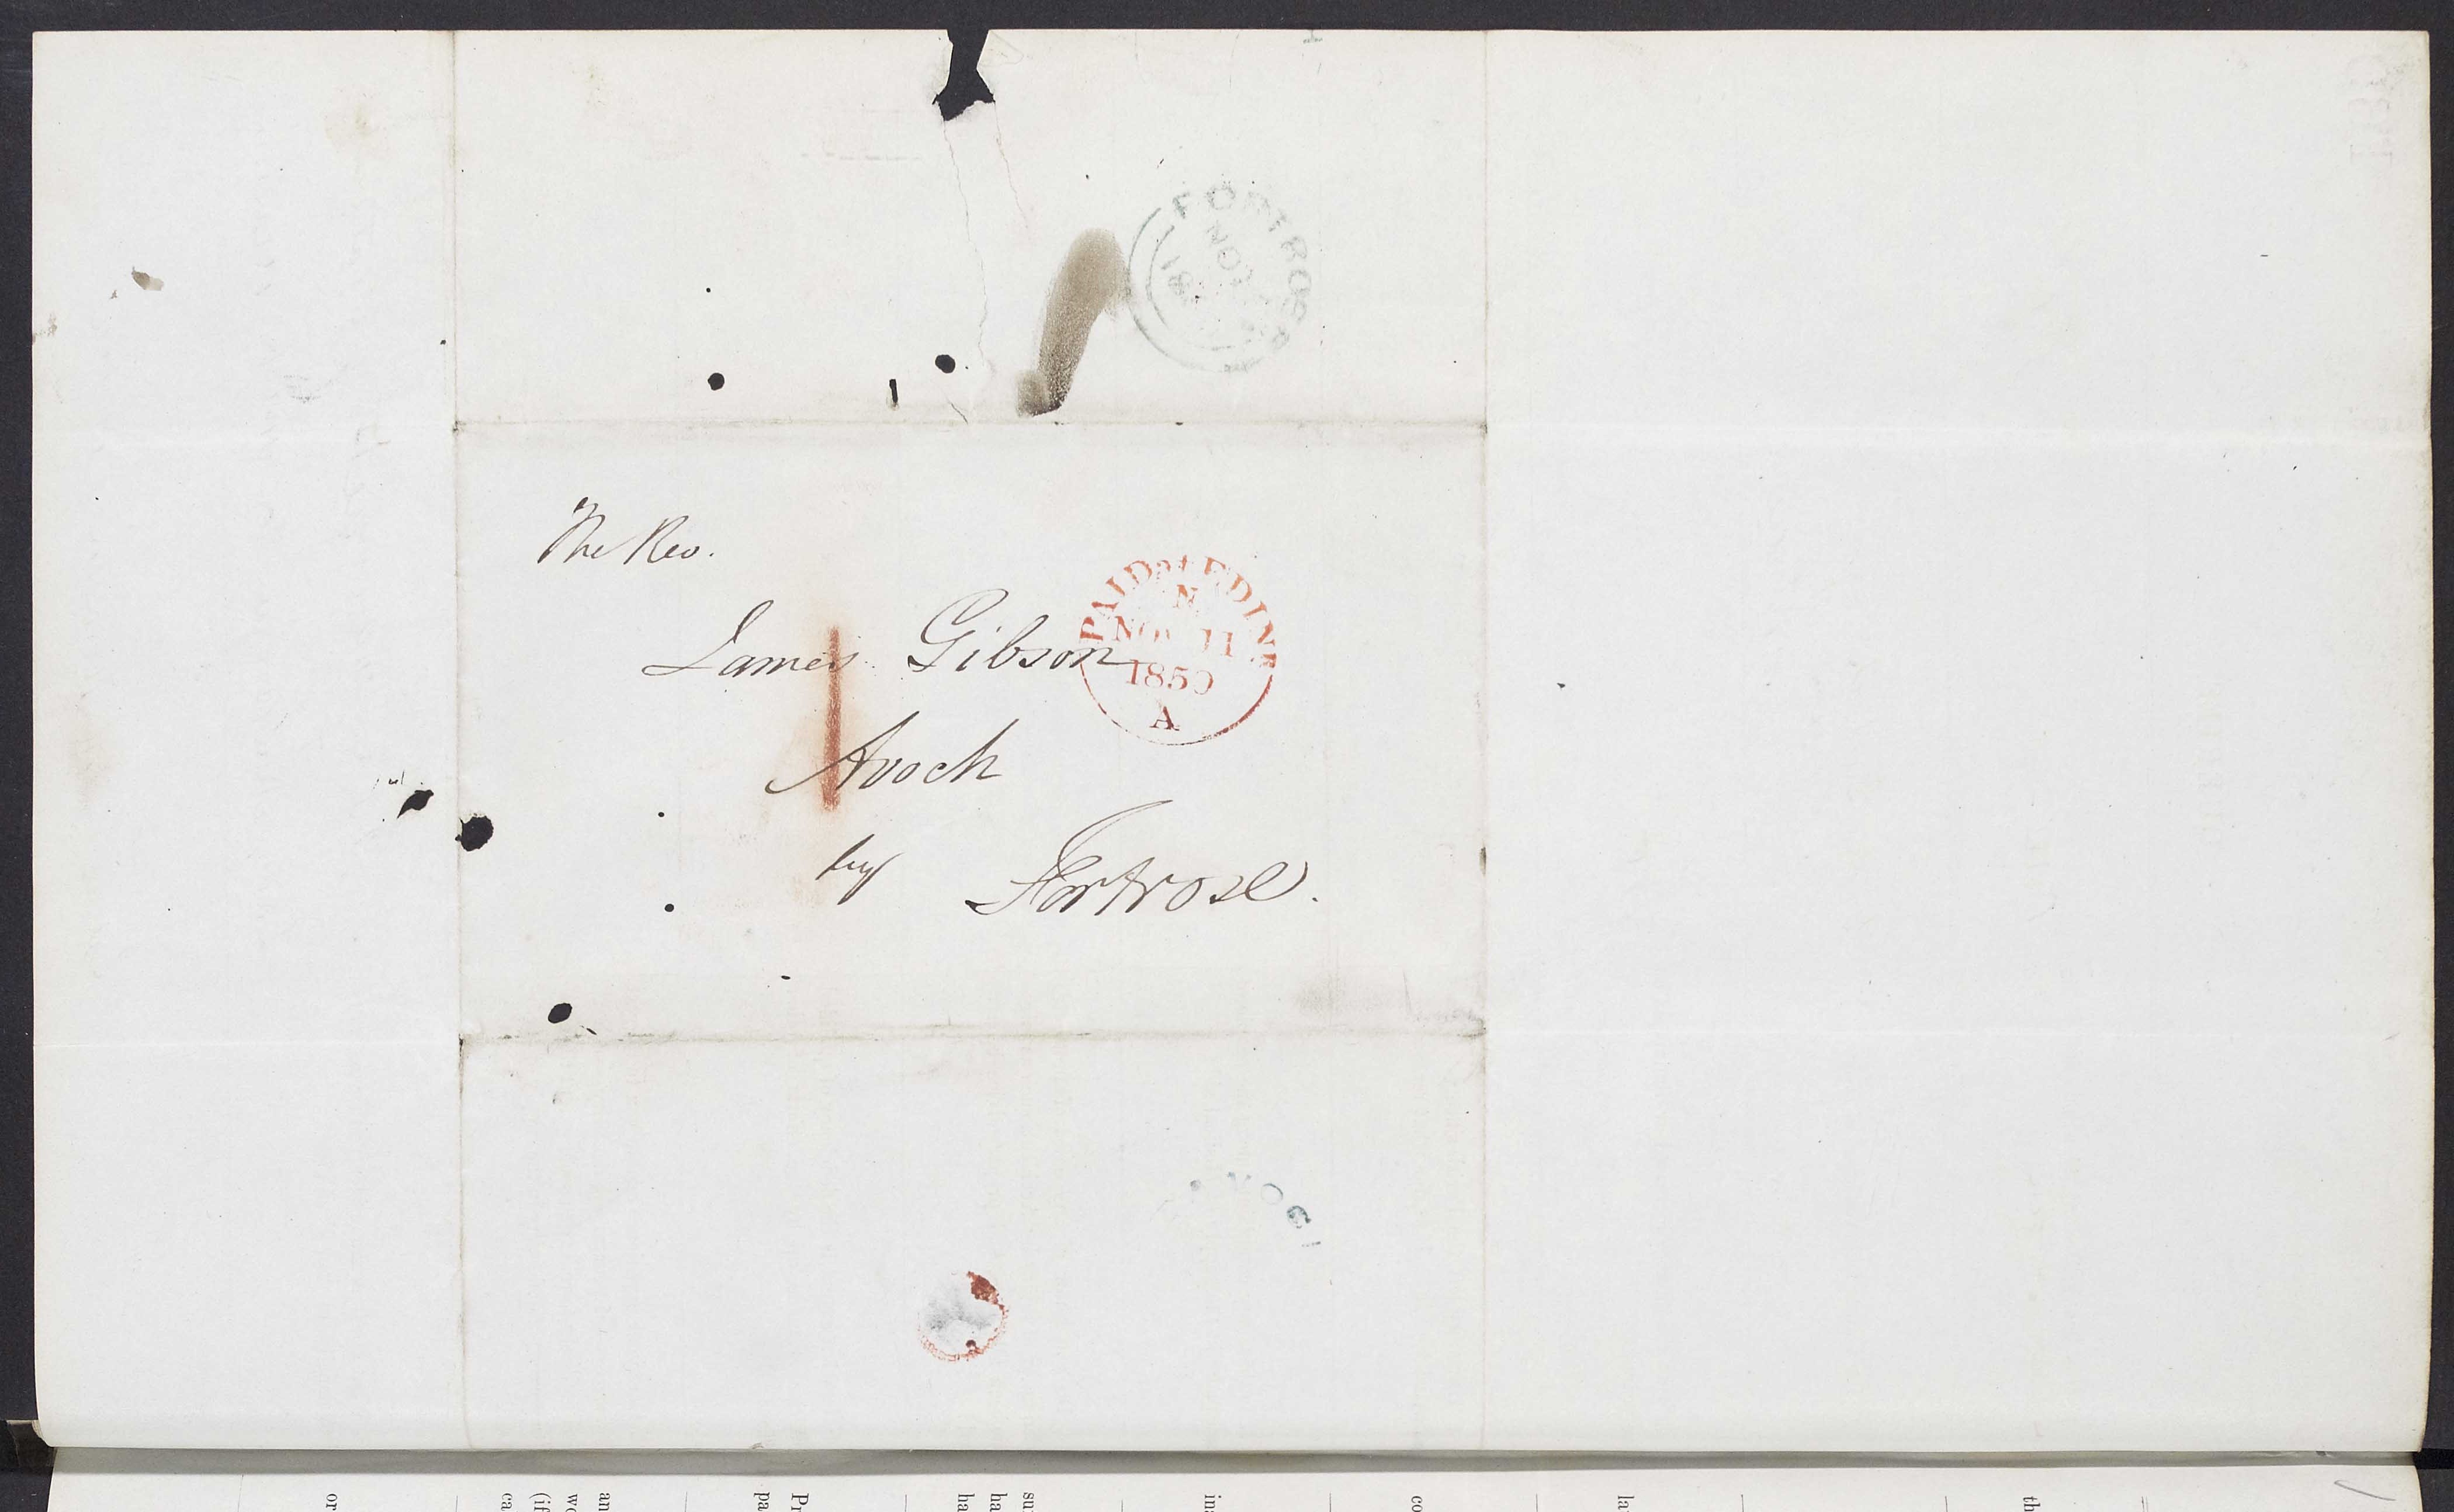 FORTROSE
NO
18
The Rev.
James Gibson
PAID at EDINR
N
NOV 11
1850
A
1
Avoch
by Fortrose.
or
ca
(if
wo
an
pa
Pr
ha
ha
su
in
co
la
th